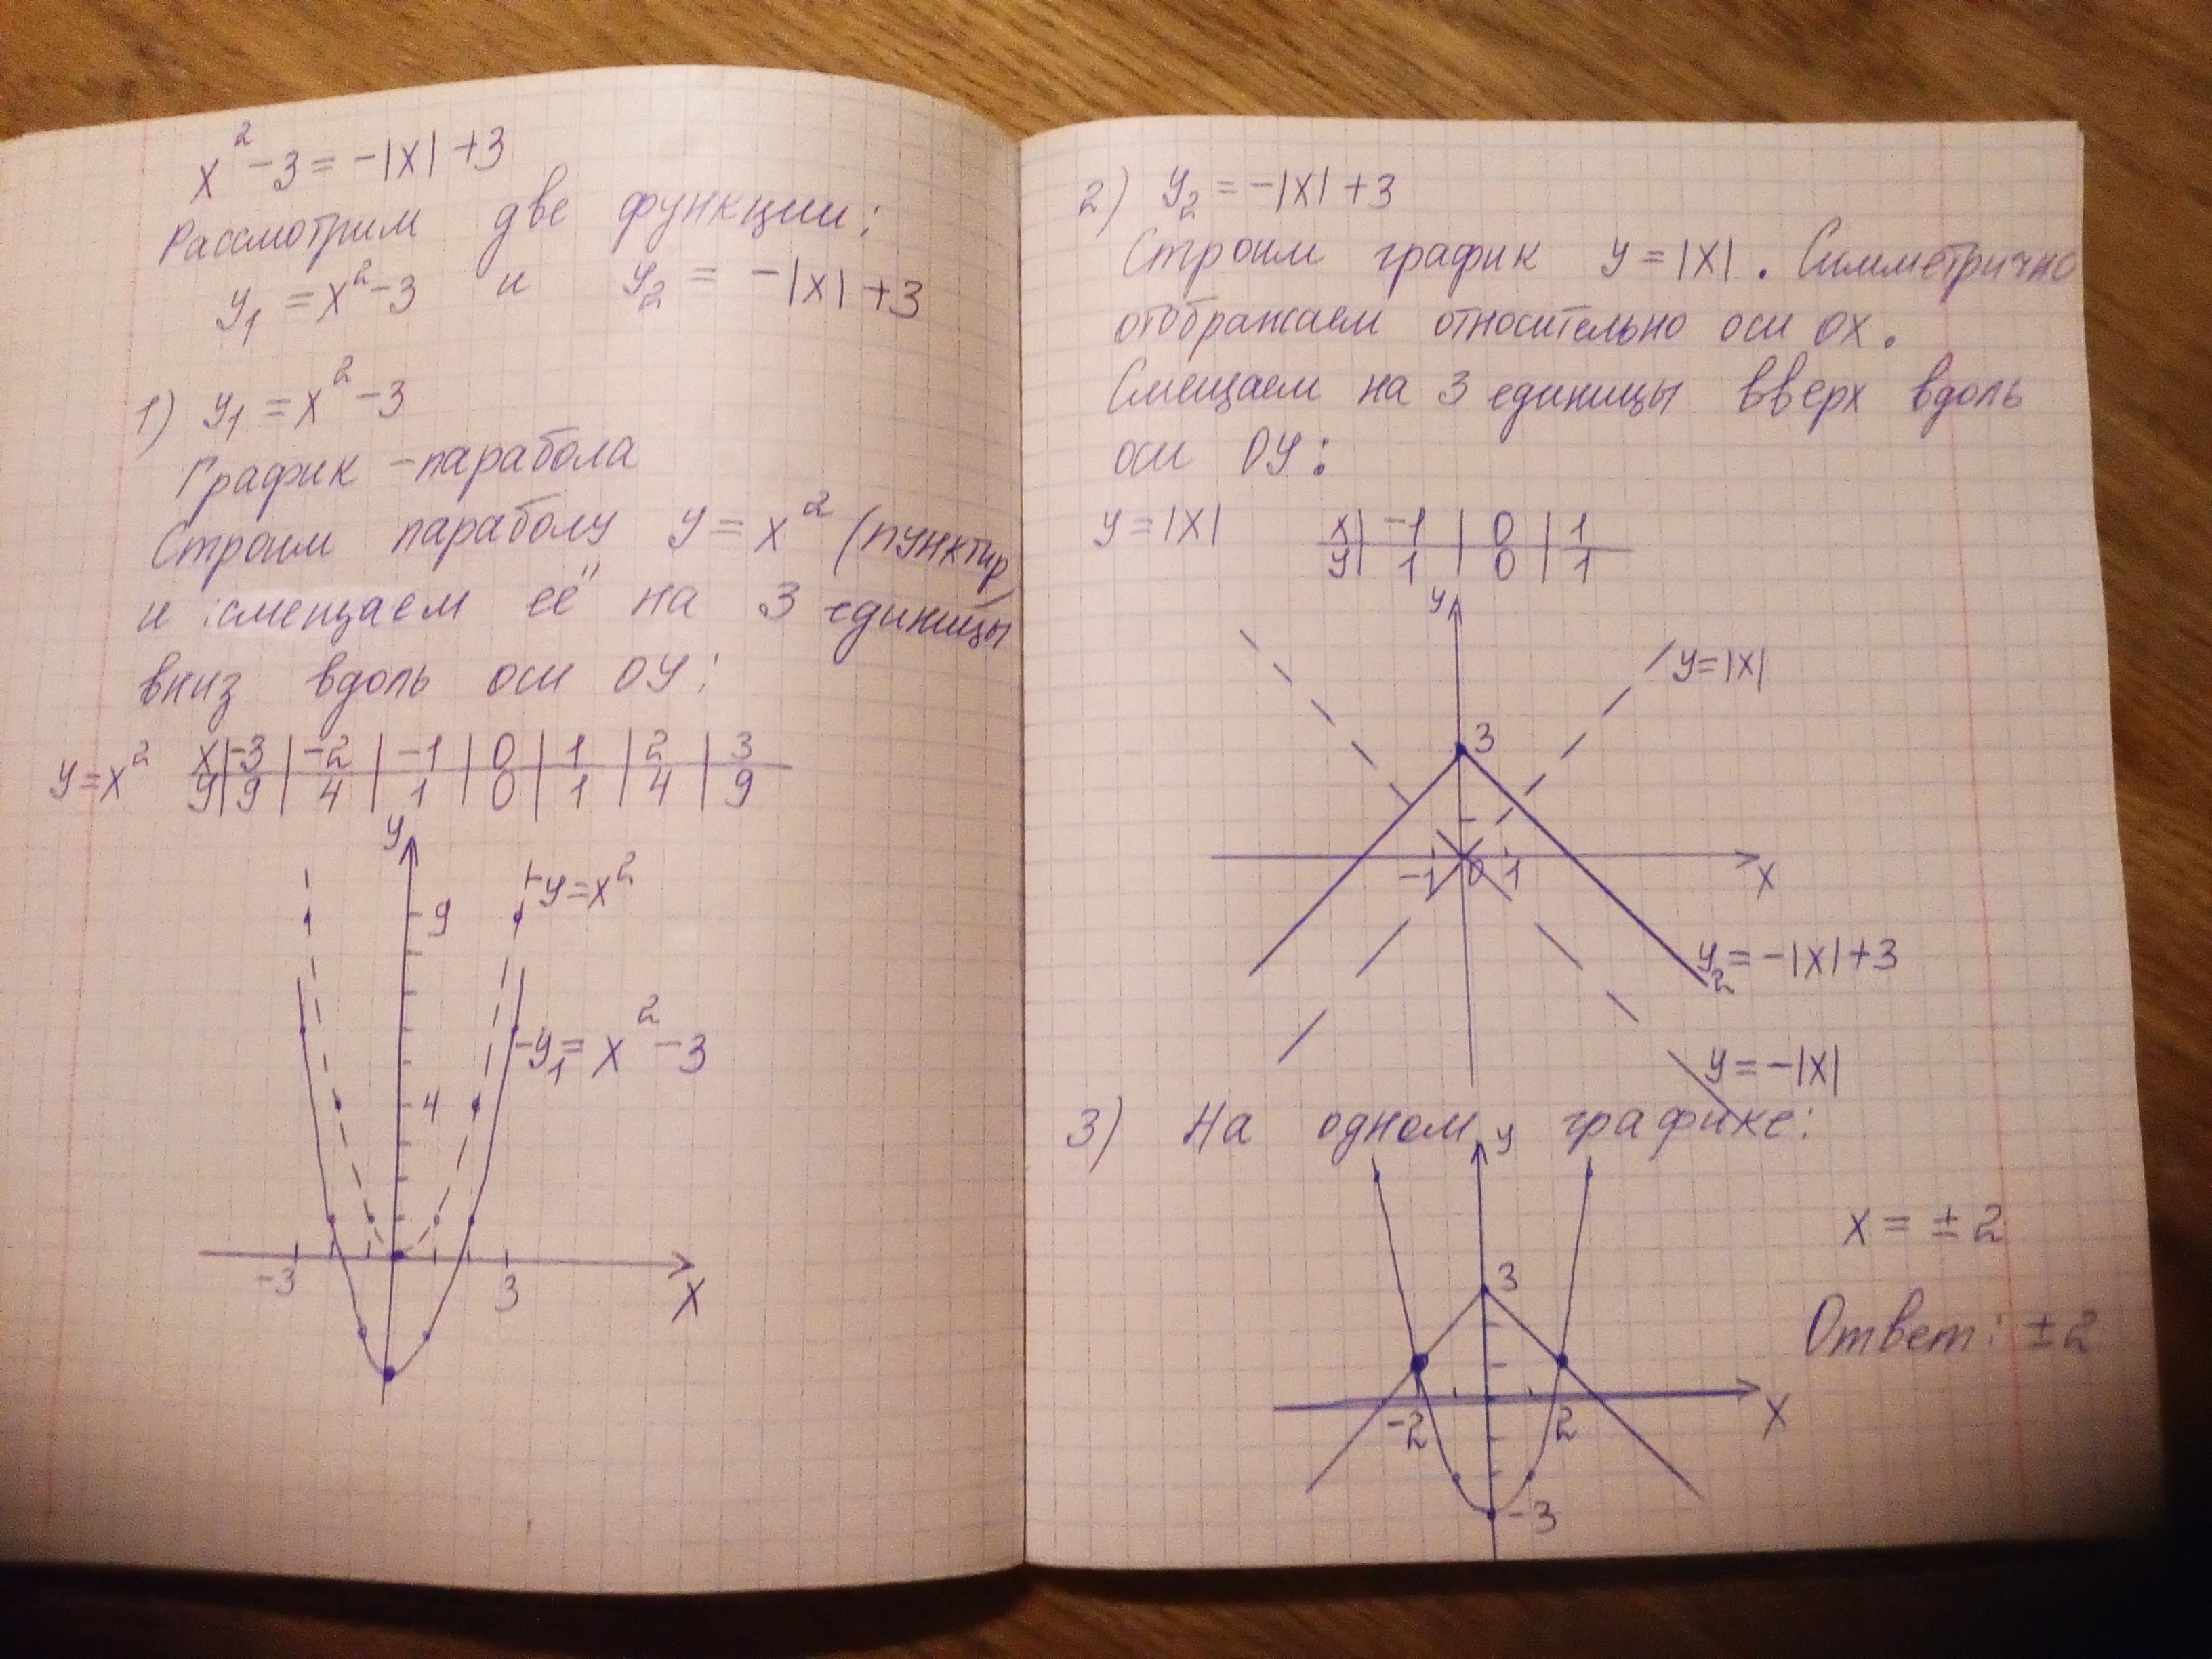 x² - 3 = -|x| + 3
Рассмотрим две функции:
y₁ = x² - 3 и y₂ = -|x| + 3
1) y₁ = x² - 3
График - парабола
Строим параболу y = x² (пунктир)
и смещаем её на 3 единицы
вниз вдоль оси OY:
y = x² x | -3 | -2 | -1 | 0 | 1 | 2 | 3
y | 9 | 4 | 1 | 0 | 1 | 4 | 9
y
y = x²
9
y₁ = x² - 3
4
-3 3 x
2) y₂ = -|x| + 3
Строим график y = |x|. Симметрично
отображаем относительно оси OX.
Смещаем на 3 единицы вверх вдоль
оси OY:
y = |x| x | -1 | 0 | 1
y | 1 | 0 | 1
y
y = |x|
3
-1 0 1 x
y₂ = -|x| + 3
y = -|x|
3) На одном графике:
y
x = ± 2
3
Ответ: ± 2
-2 2 x
-3